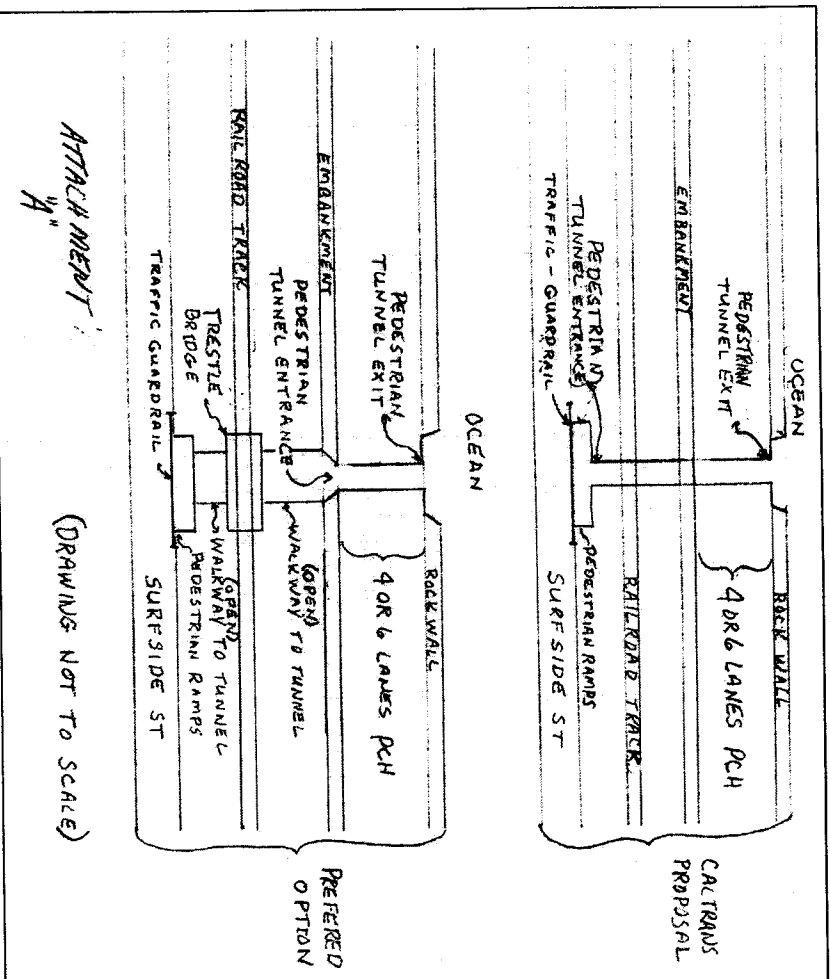 OCEAN
PEDESTRIAN
TUNNEL EXIT
ROCK WALL
4 OR 6 LANES PCH
EMBANKMENT
RAILROAD TRACK
PEDESTRIAN
TUNNEL ENTRANCE
TRAFFIC - GUARDRAIL
PEDESTRIAN RAMPS
SURFSIDE ST
CALTRANS
PROPOSAL
OCEAN
PEDESTRIAN
TUNNEL EXIT
ROCK WALL
4 OR 6 LANES PCH
EMBANKMENT
PEDESTRIAN
TUNNEL ENTRANCE
(OPEN)
WALKWAY TO TUNNEL
RAILROAD TRACK
TRESTLE
BRIDGE
(OPEN)
WALKWAY TO TUNNEL
PEDESTRIAN RAMPS
TRAFFIC GUARDRAIL
SURFSIDE ST
PREFERED
OPTION
ATTACHMENT:
"A"
(DRAWING NOT TO SCALE)